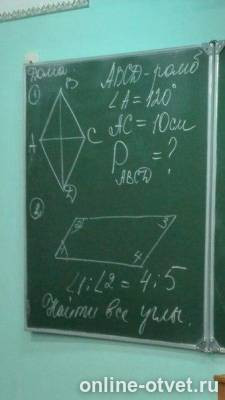 Дома:
① ABCD - ромб
∠A = 120°
AC = 10 см
P = ?
ABCD
B
A
C
D
②
2
3
1
4
∠1 : ∠2 = 4 : 5
Найти все углы.
online-otvet.ru